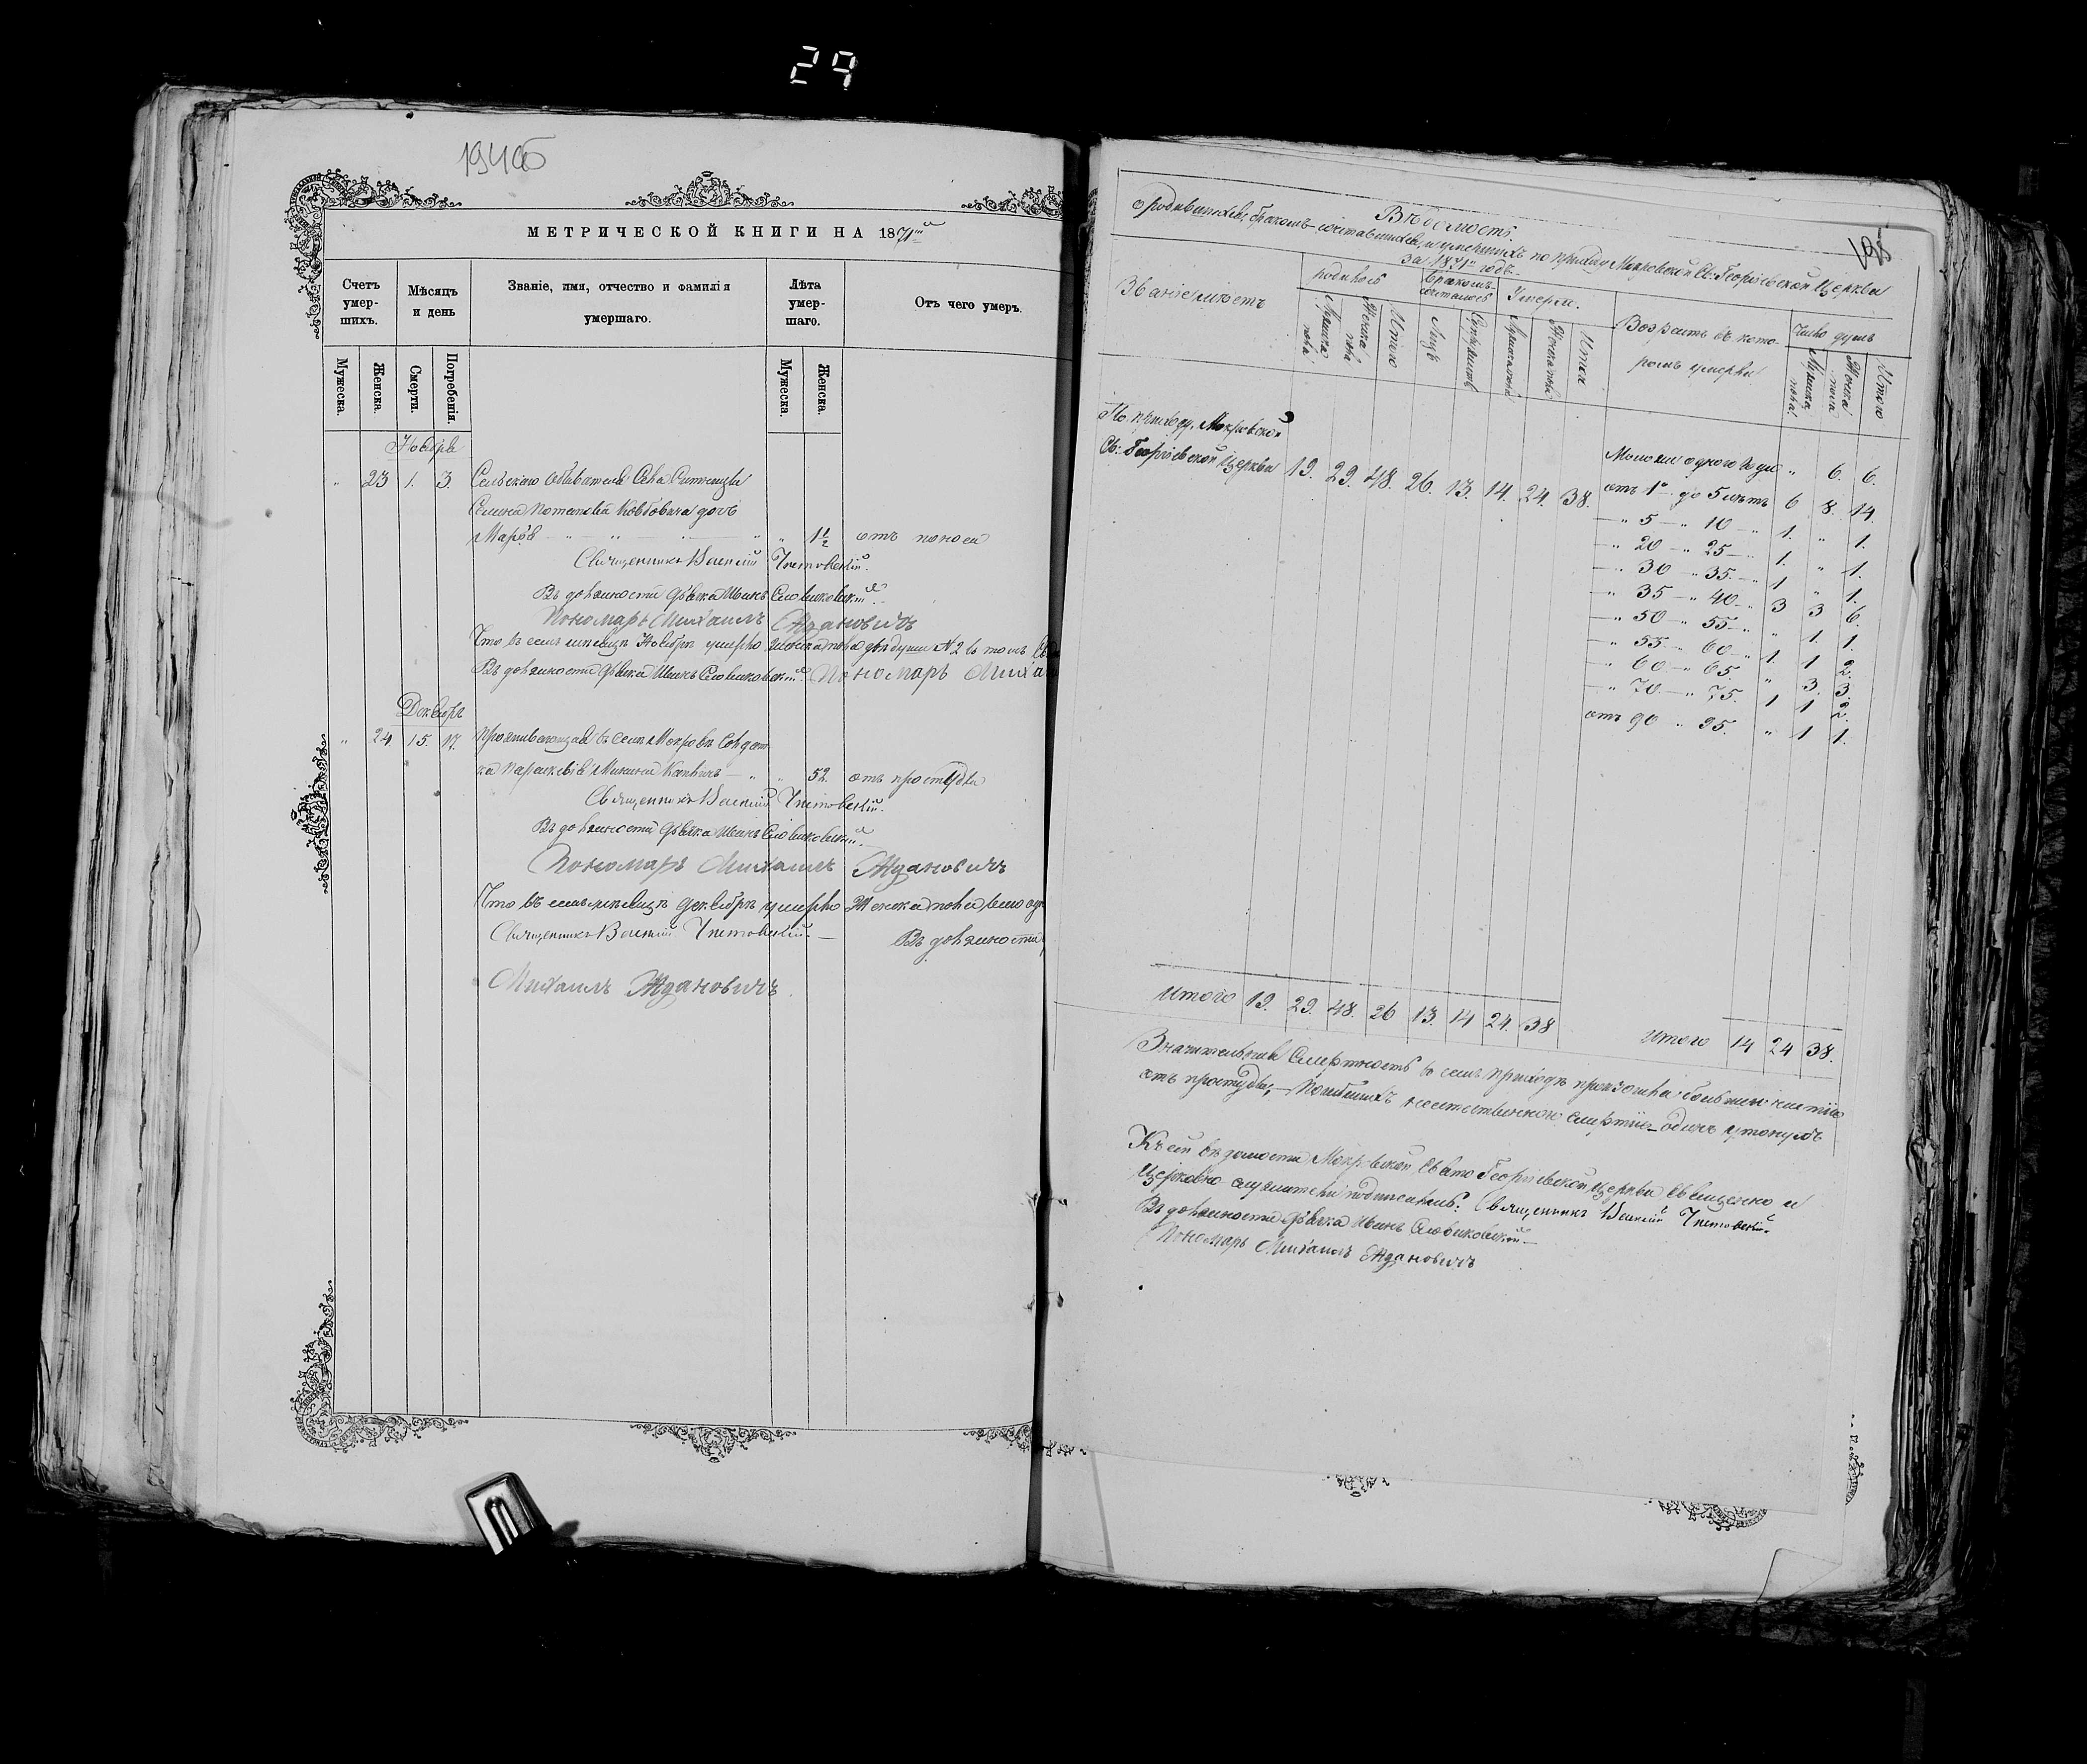 29
194об
МЕТРИЧЕСКОЙ КНИГИ НА 1871
Счетъ умер-шихъ.
Мѣсяцъ и день
Званіе, имя, отчество и фамилія умершаго.
Лѣта умер-шаго.
Отъ чего умеръ.
Мужеска.
Женска.
Смерти.
Погребенія.
Мужеска.
Женска.
Ноября
" 23 1. 3. Сельскаго обывателя Села
дочь
" " 1½ отъ поноса
Священникъ Василій
Въ должности дьячка Иванъ
Пономарь Михаилъ Ждановичъ
Что въ семъ мѣсяцѣ Ноябрѣ умерло женска пола двѣ души № 2 въ томъ
Въ должности дьячка Иванъ Пономарь
Декабря
" 24 15. 17. Проживающая въ селѣ Мокровѣ Солдат
ка Параскевія " " 52. отъ простуды
Священникъ Василій
Въ должности дьячка Иванъ
Пономарь Михаилъ Ждановичъ
Что въ семъ мѣсяцѣ декабрѣ умерло Женска пола
Священникъ Василій Въ должности
Михаилъ Ждановичъ
195
Вѣдомость
о родившихся, бракомъ сочетавшихся, и умершихъ по приходу Мокровской Св: Георгіевской Церкви
за 1871й годъ
Званіе мѣстъ
родилось
Бракомъ сочеталось
Умерло.
Возрастъ въ кото-
ромъ умерли
Число душъ
Мужска пола
Женска пола
Итого
Лицъ
Супружествъ
Мужска пола
Женска пола
Итого
Мужска пола
Женска пола
Итого
По приходу Мокровской
Св: Георгіевской Церкви 19. 29. 48. 26. 13. 14. 24. 38.
Моложе одного года " 6. 6.
отъ 1го до 5 лѣтъ 6 8. 14.
" 5 " 10 " 1. " 1.
" 20 " 25 " 1. " 1.
" 30 " 35. " 1 " 1.
" 35 " 40 " 3 3 6.
" 50 " 55 " " 1. 1.
" 55 " 60 " 1. 1 2.
" 60 " 65. " 3. 3.
" 70 " 75. 1 1 2.
отъ 90 " 95. " 1 1.
Итого 19. 29. 48. 26 13. 14 24. 38
Итого 14 24 38.
Значительная Смертность въ семъ приходѣ произошла
отъ простуды; Погибшихъ смертію одинъ утонулъ
Къ сей вѣдомости Мокровской Свято Георгіевской церкви Священно и
Церковно служители подписались: Священникъ Василій
Въ должности дьячка Иванъ
Пономарь Михаилъ Ждановичъ